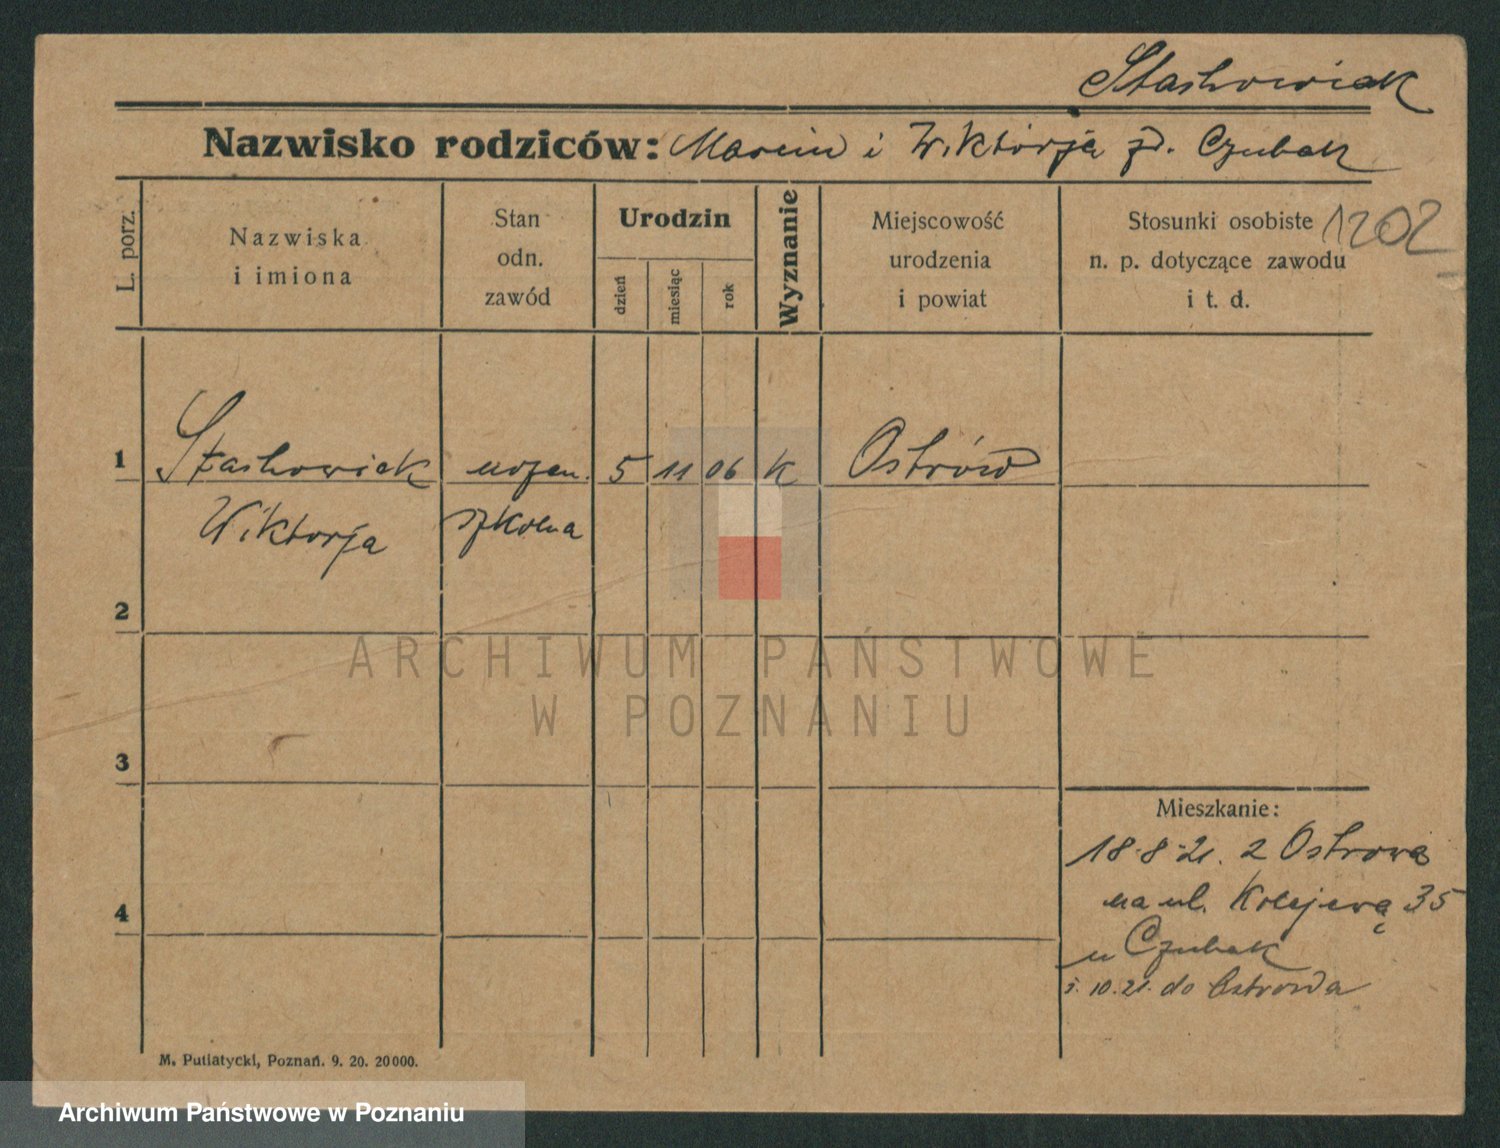 Stachowiak
Nazwisko rodziców: Marcin i Wiktorja zd. Czubak
L. porz.
Nazwiska
i imiona
Stan
odn.
zawód
Urodzin
dzień
miesiąc
rok
Wyznanie
Miejscowość
urodzenia
i powiat
Stosunki osobiste
n. p. dotyczące zawodu
i t. d.
1202
1 Stachowiak uczen. 5 11 06 K Ostrów
Wiktorja szkolna
2
3
4
Mieszkanie:
18-8-21. z Ostrowa
na ul. Kolejową 35
u Czubak
10.21. do Ostrowa
M. Putiatycki, Poznań. 9. 20. 20000.
ARCHIWUM PAŃSTWOWE
W POZNANIU
Archiwum Państwowe w Poznaniu